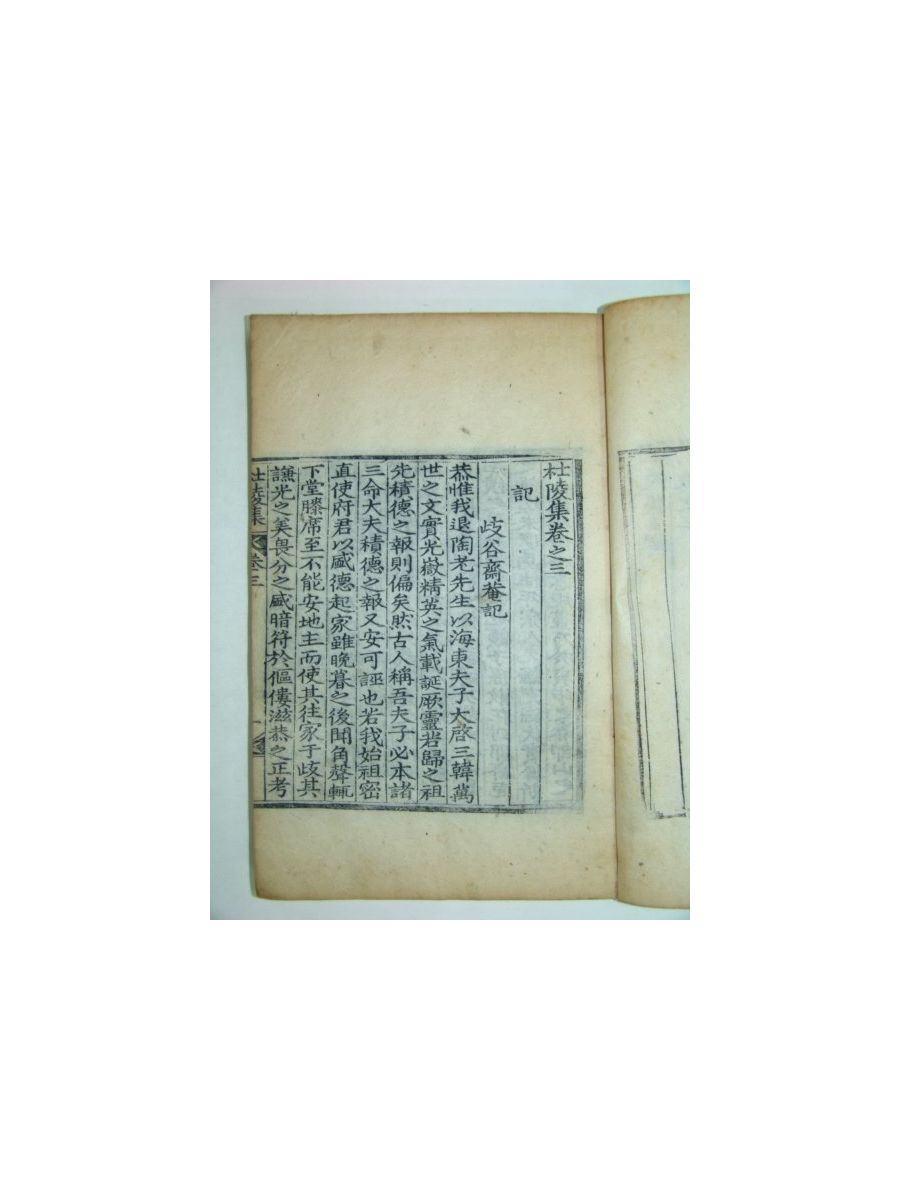 杜陵集卷之三
記
岐谷齋菴記
恭惟我退陶老先生以海東夫子大啓三韓萬
世之文實光嶽精英之氣載誕厥靈若歸之祖
先積德之報則偏矣然古人稱吾夫子必本諸
三命大夫積德之報又安可誣也若我始祖密
直使府君以盛德起家雖晩暮之後聞角聲輒
下堂縢席至不能安地主而使其往家于岐其
謙光之美畏分之盛暗符於傴僂滋恭之正考
杜陵集 卷三 一